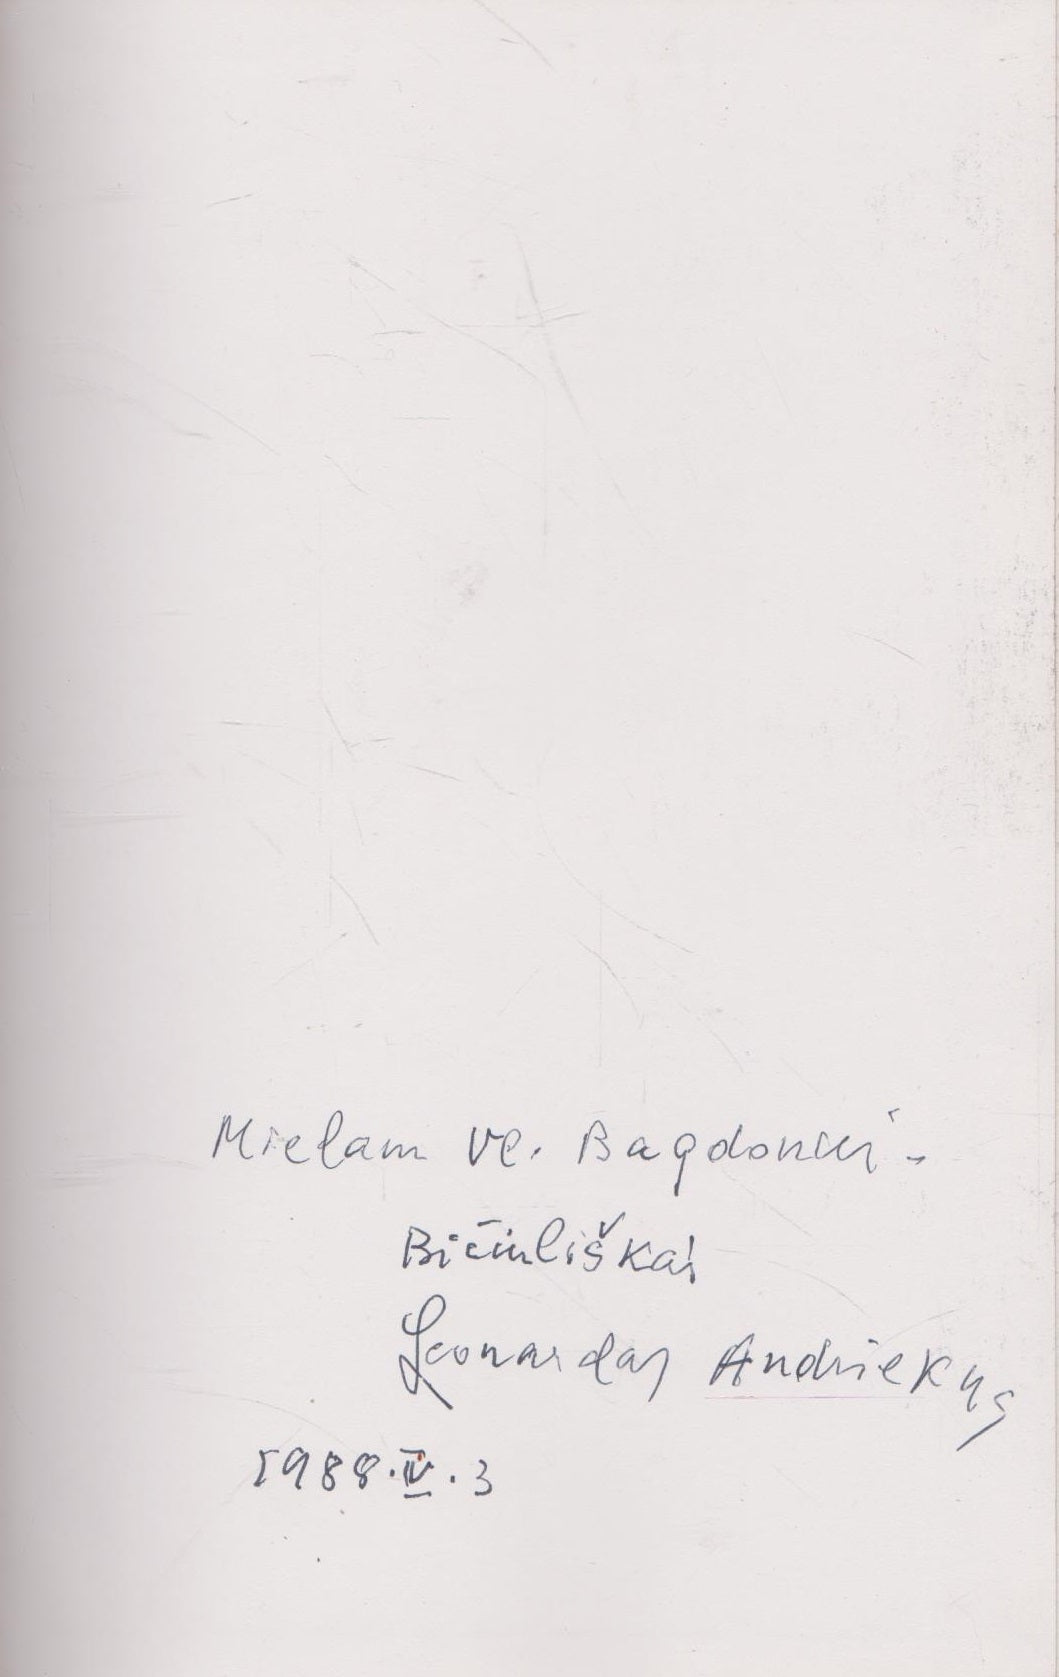 Mielam Vl. Bagdonui -
Bičiuliškai
Leonardas Andriekus
1988.IV.3